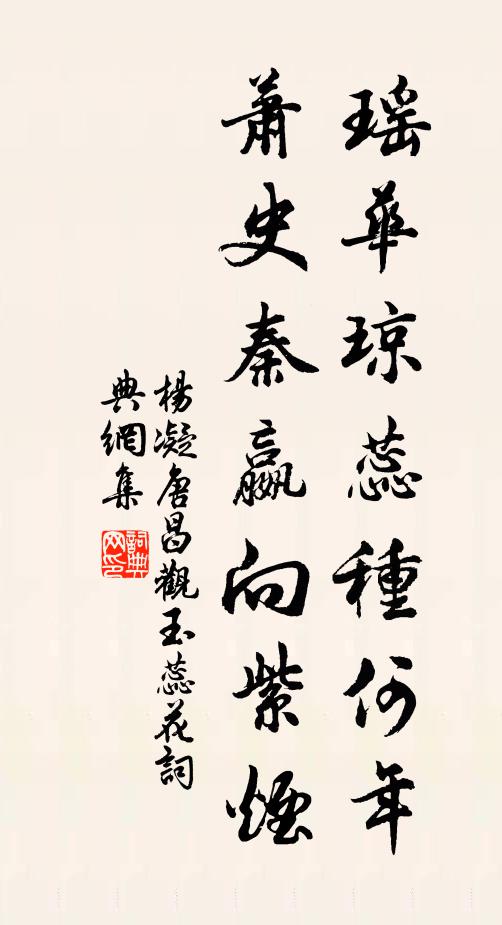 瑶華琼蕊種何年
萧史秦嬴向紫煙
楊凝唐昌觀玉蕊花詞
典網集
詞典网印